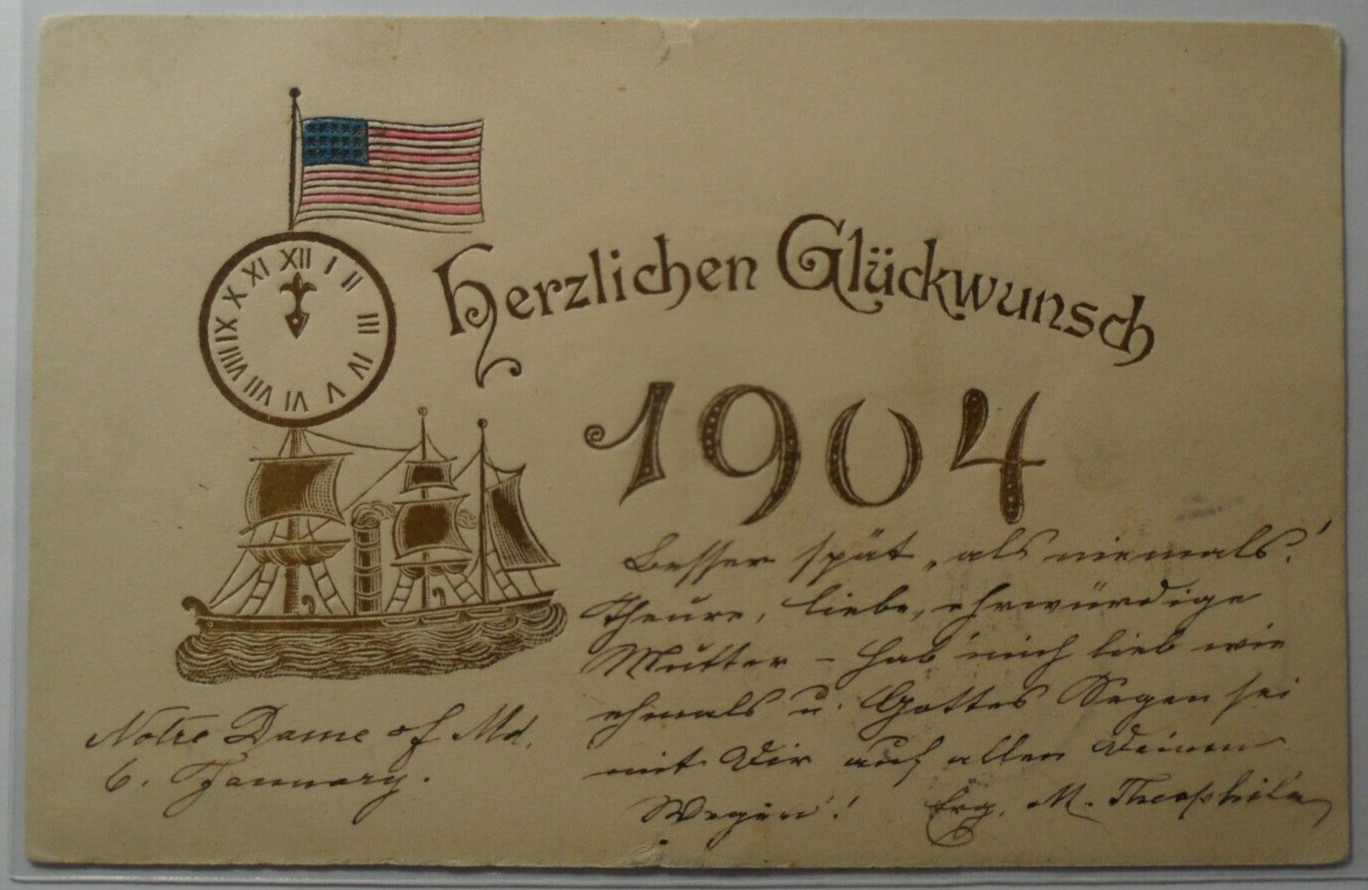 XII I II III IV V VI VII VIII IX X XI
Herzlichen Glückwunsch
1904
Besser spät, als niemals!
Theure, liebe, ehrwürdige
Mutter – hab' mich lieb wie
ehmals u. Gottes Segen sei
mit Dir auf allen Deinen
Wegen! Erg. M. Theophila
Notre Dame of Md.
6. January.